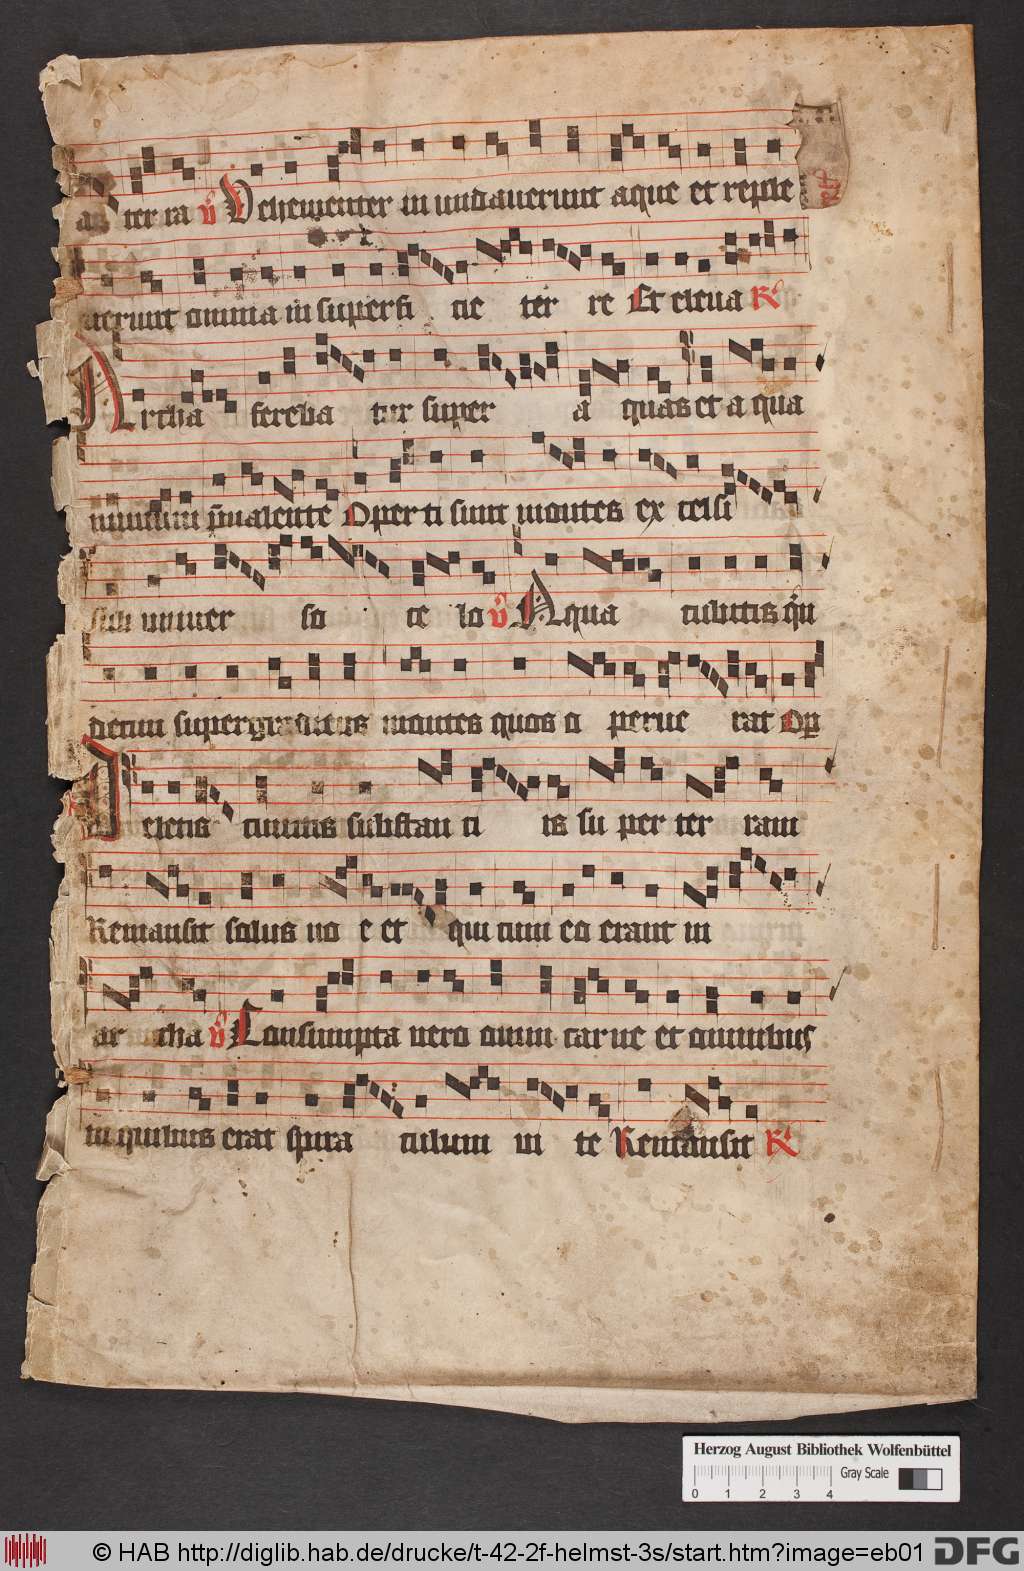 ter ra ℣ Vehementer in undauerunt aque et reple
uerunt omnia in superfi cie ter re Et eleua ℟
Archa fereba tur super a quas et a qua
p̄ualente Oper ti sunt montes ex celsi
sub uniuer so ce lo ℣ Aqua cubitis qn̄
decim super montes quos o perue rat Oꝑ
eletis cunctis substan ti is su per ter ram
Remansit solus no e et qui cum eo erant in
ar cha ℣ Consumpta uero omni car ne et omnibus
in quibus erat spira culum ui te Remansit ℟
Herzog August Bibliothek Wolfenbüttel
Gray Scale
0 1 2 3 4
© HAB http://diglib.hab.de/drucke/t-42-2f-helmst-3s/start.htm?image=eb01 DFG